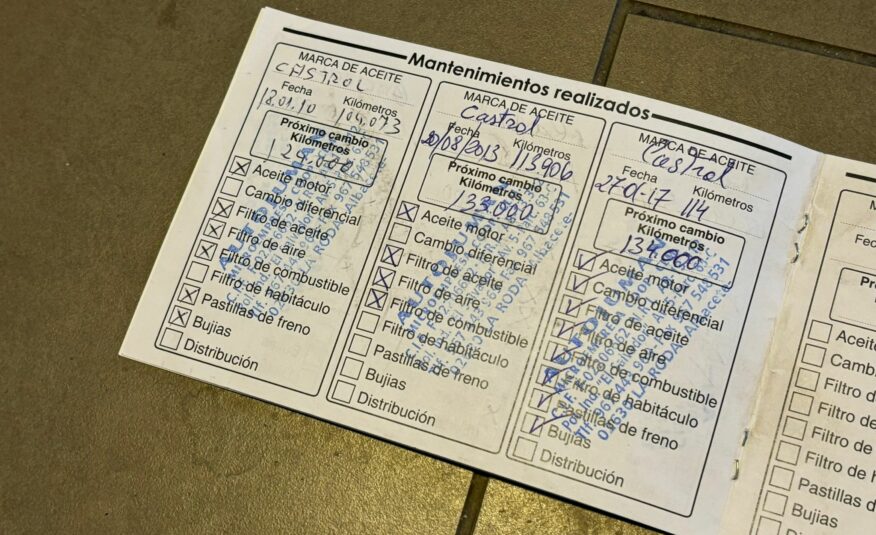 Mantenimientos realizados
MARCA DE ACEITE
CASTROL
Fecha Kilómetros
18.01.10 104.073
Próximo cambio
Kilómetros
124.000
Aceite motor
Cambio diferencial
Filtro de aceite
Filtro de aire
Filtro de combustible
Filtro de habitáculo
Pastillas de freno
Bujías
Distribución
MARCA DE ACEITE
Castrol
Fecha Kilómetros
20/08/2013 113906
Próximo cambio
Kilómetros
133.000
Aceite motor
Cambio diferencial
Filtro de aceite
Filtro de aire
Filtro de combustible
Filtro de habitáculo
Pastillas de freno
Bujías
Distribución
MARCA DE ACEITE
Castrol
Fecha Kilómetros
27-01-17 114
Próximo cambio
Kilómetros
134.000
Aceite motor
Cambio diferencial
Filtro de aceite
Filtro de aire
Filtro de combustible
Filtro de habitáculo
Pastillas de freno
Bujías
Distribución
02630 LA RODA
MA
Fec
Pr
Aceite
Camb
Filtro d
Filtro de
Filtro de
Filtro de h
Pastillas d
Bujías